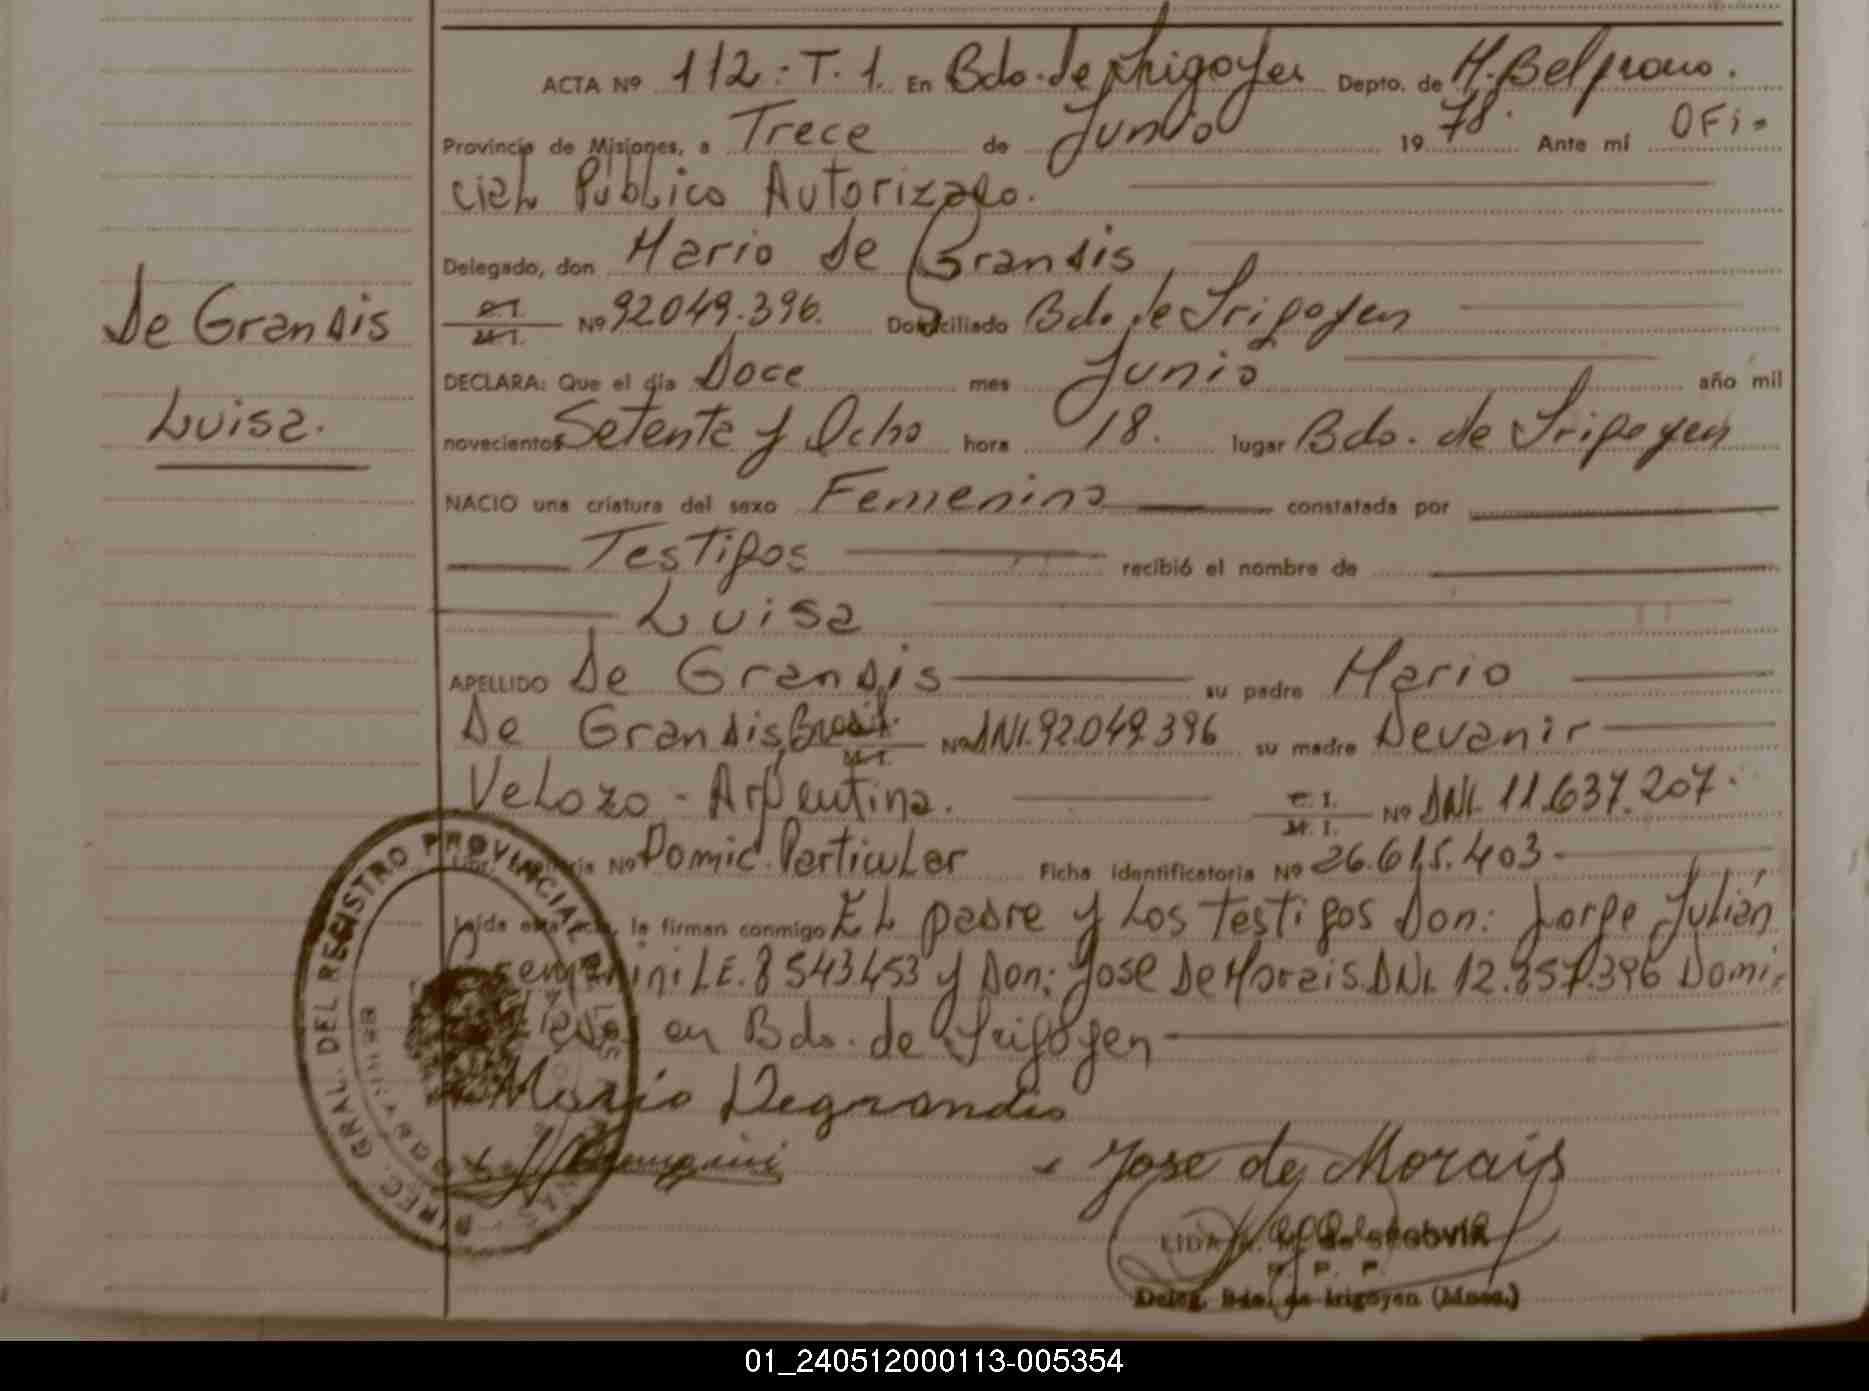 ACTA Nº 112.-T.1. En Bdo. de Irigoyen Depto. de M. Belgrano.
Provincia de Misiones, a Trece de Junio 1978. Ante mí OFi-
ciaL Público Autorizado.
Delegado, don Mario De Grandis
C.I. M.I. Nº 92.049.396. Domiciliado Bdo. de Irigoyen
De Grandis
DECLARA: Que el día Doce mes Junio año mil
Luisa.
novecientos Setenta y Ocho hora 18. lugar Bdo. de Irigoyen
NACIO una criatura del sexo Femenino constatada por
Testigos recibió el nombre de
Luisa
APELLIDO De Grandis su padre Mario
De Grandis, Brasil. M.I. Nº DNI. 92.049.396 su madre Devanir
VeLozo - Argentina. C.I. M.I. Nº DNI. 11.637.207.
Nº Domic. ParticuLar Ficha identificatoria Nº 26.615.403-
Leída esta acta, la firman conmigo EL padre y Los testigos Don: Jorge Julián
LE. 8543.453 y Don: Jose De Morais. DNI. 12.857.396 Domi-
en Bdo. de Irigoyen
Mario Degrandis
Jose de Morais
LIDA
P. P.
Deleg. Bdo. de Irigoyen (Mnes.)
DIREC. GRAL. DEL REGISTRO PROVINCIAL DE LAS
01_240512000113-005354